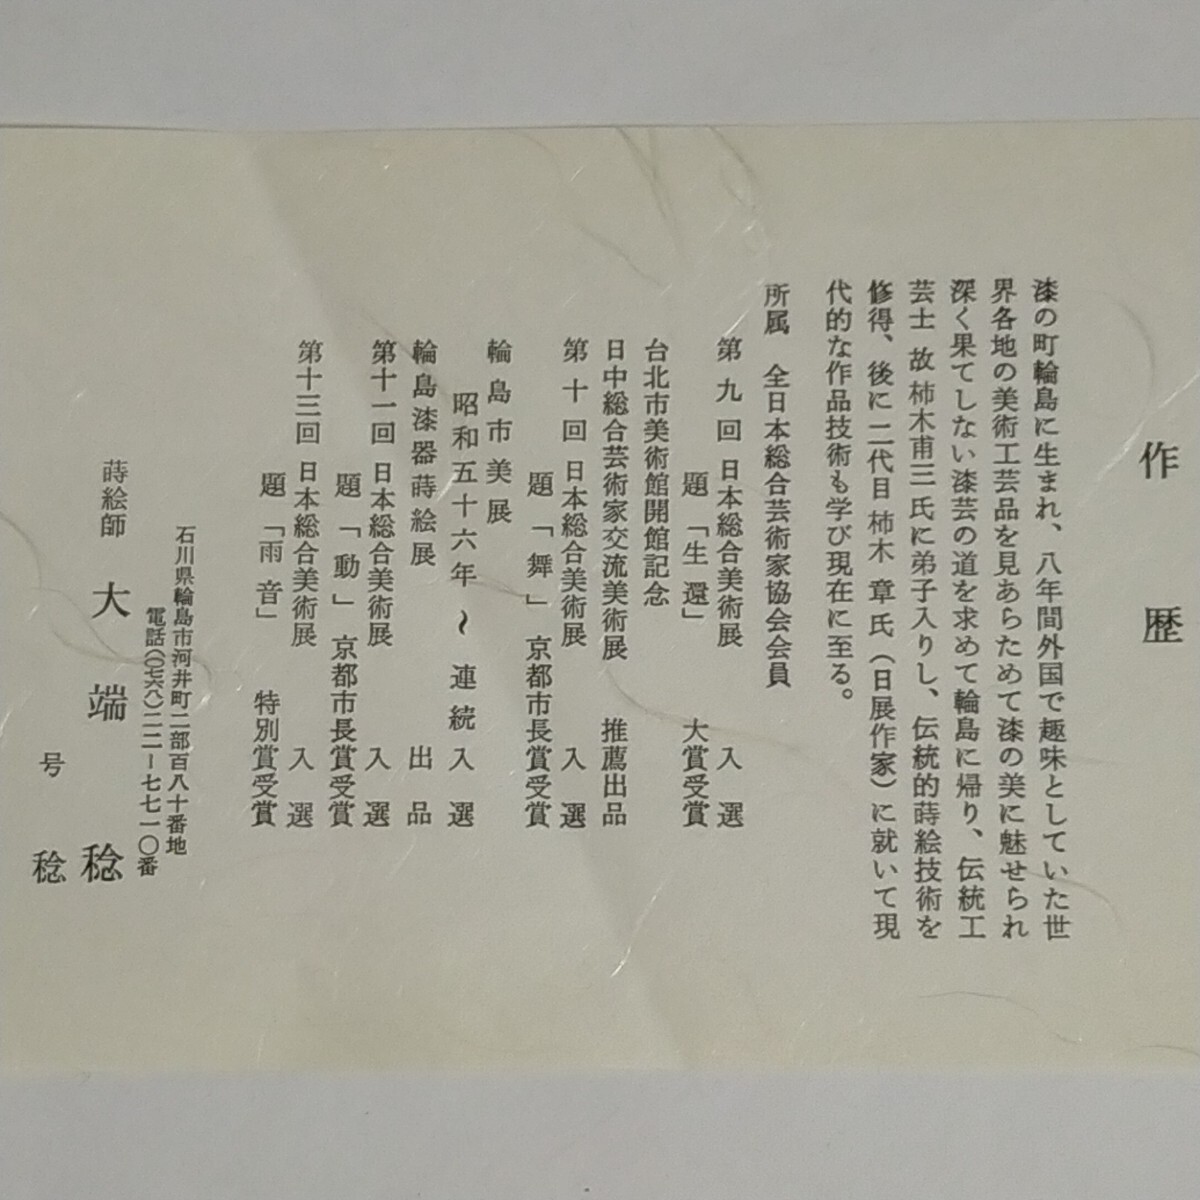 作歴
漆の町輪島に生まれ、八年間外国で趣味としていた世
界各地の美術工芸品を見あらためて漆の美に魅せられ
深く果てしない漆芸の道を求めて輪島に帰り、伝統工
芸士 故 柿木甫三 氏に弟子入りし、伝統的蒔絵技術を
修得、後に二代目 柿木 章氏（日展作家）に就いて現
代的な作品技術も学び現在に至る。
所属 全日本総合芸術家協会会員
第九回 日本総合美術展 入選
題「生還」 大賞受賞
台北市美術館開館記念
日中総合芸術家交流美術展 推薦出品
第十回 日本総合美術展 入選
題「舞」 京都市長賞受賞
輪島市美展
昭和五十六年〜連続入選
輪島漆器蒔絵展 出品
第十一回 日本総合美術展 入選
題「動」 京都市長賞受賞
第十三回 日本総合美術展 入選
題「雨音」 特別賞受賞
石川県輪島市河井町二部百八十番地
電話(〇七六八)二二ー七七一〇番
蒔絵師 大端 稔
号 稔